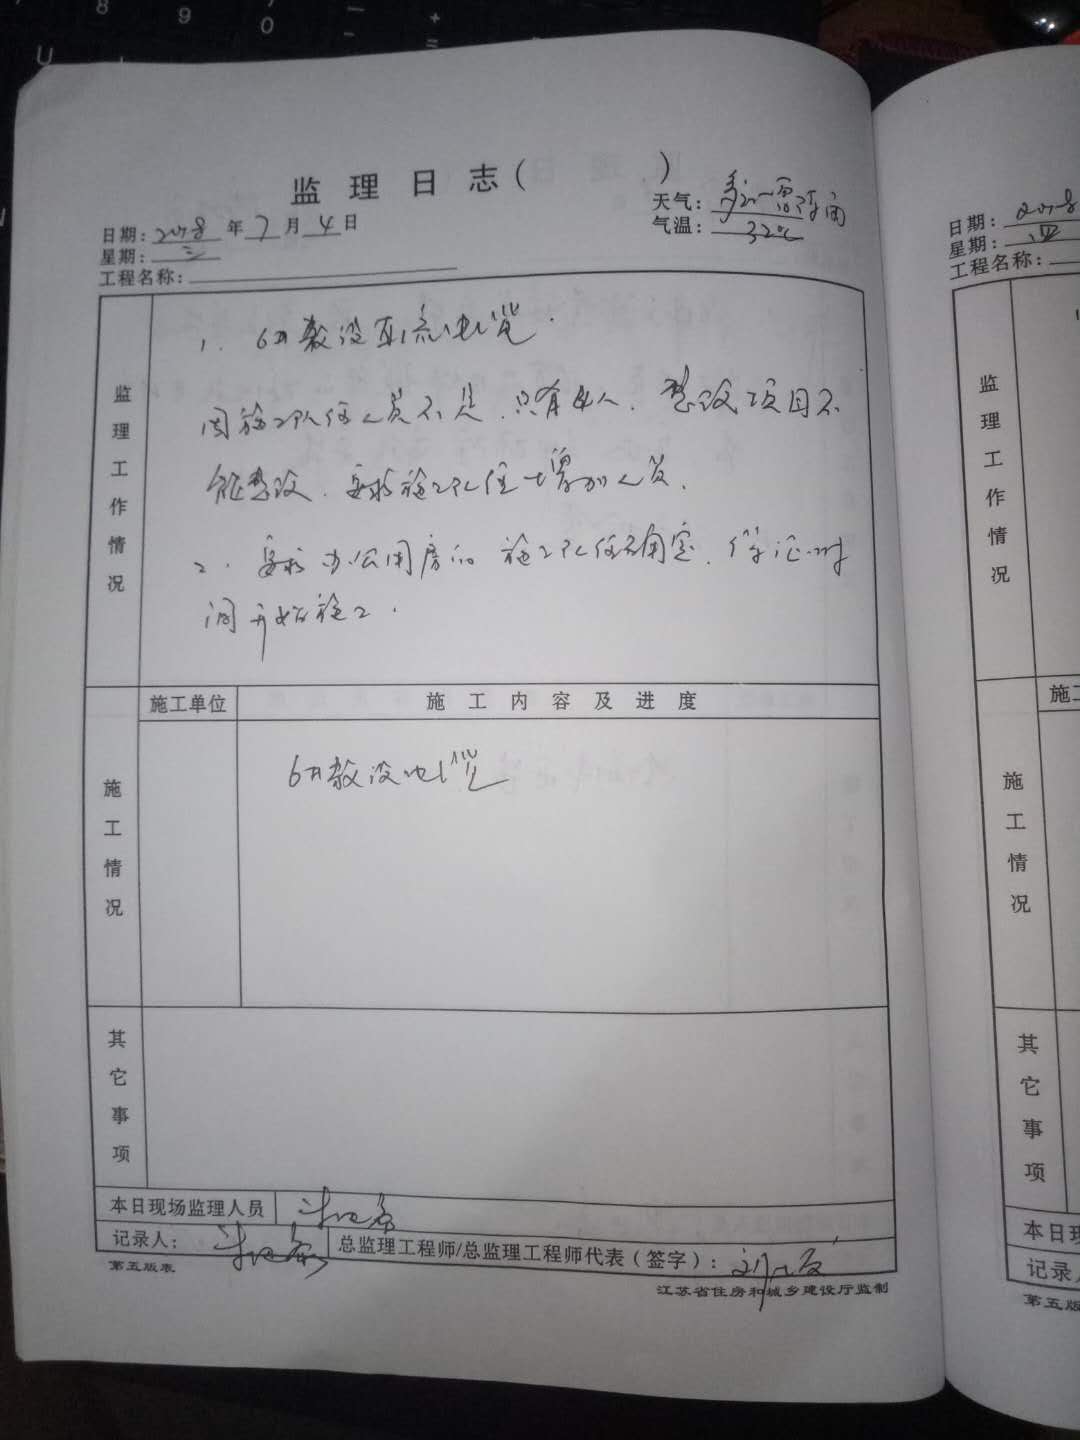 8 9 0 - +
=
U
监 理 日 志 (            )
日期: 2018 年 7 月 4 日
天气: 多云 雷阵雨
星期: 三
气温: 32℃
工程名称:
监理工作情况
1. 6#敷设直流电缆.
因施工队伍人员不足,只有4人,整改项目不
能整改,要求施工队伍增加人员.
2. 要求办公用房的施工队伍确定,保证时
间开始施工.
施工单位
施 工 内 容 及 进 度
施工情况
6#敷设电缆
其它事项
本日现场监理人员
记录人:
总监理工程师/总监理工程师代表(签字):
第五版表
江苏省住房和城乡建设厅监制
日期: 2018
星期: 四
工程名称:
监理工作情况
施工
施工情况
其它事项
本日现
记录人
第五版